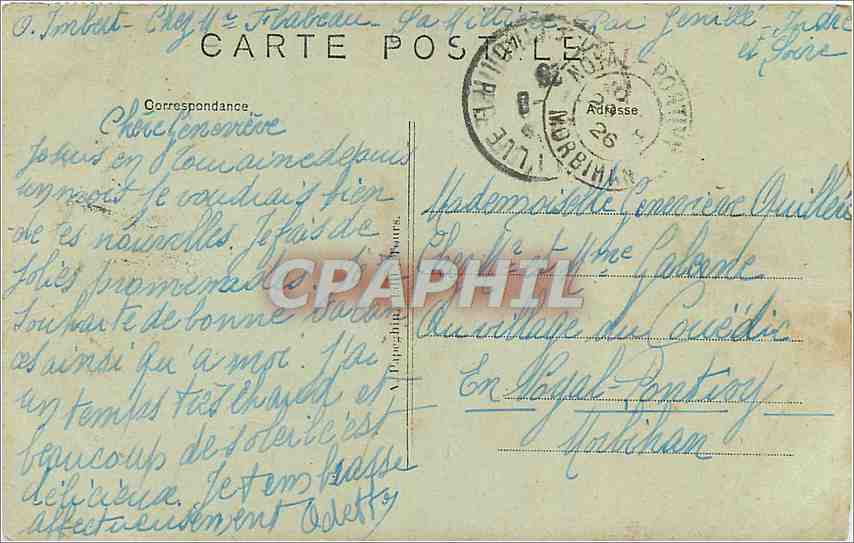 O. Imbert - Chez Mr Flabeau - La - Par Genillé - Indre
et Loire
CARTE POSTALE
Correspondance
Adresse
Chère Geneviève
Je suis en Touraine depuis
un mois. Je voudrais bien
de tes nouvelles. Je fais de
jolies promenades.
souhaite de bonne
ces ainsi qu'a moi. J'ai
un temps très chaud et
beaucoup de soleil c'est
délicieux. Je t'embrasse
affectueusement Odette
Papeghin Tours.
NOYAL-PONTIVY
26
MORBIHAN
Mademoiselle Geneviève Quilleré
Chez Mr et Mme
Au village du Guédic
En Noyal-Pontivy
Morbihan
CPAPHIL